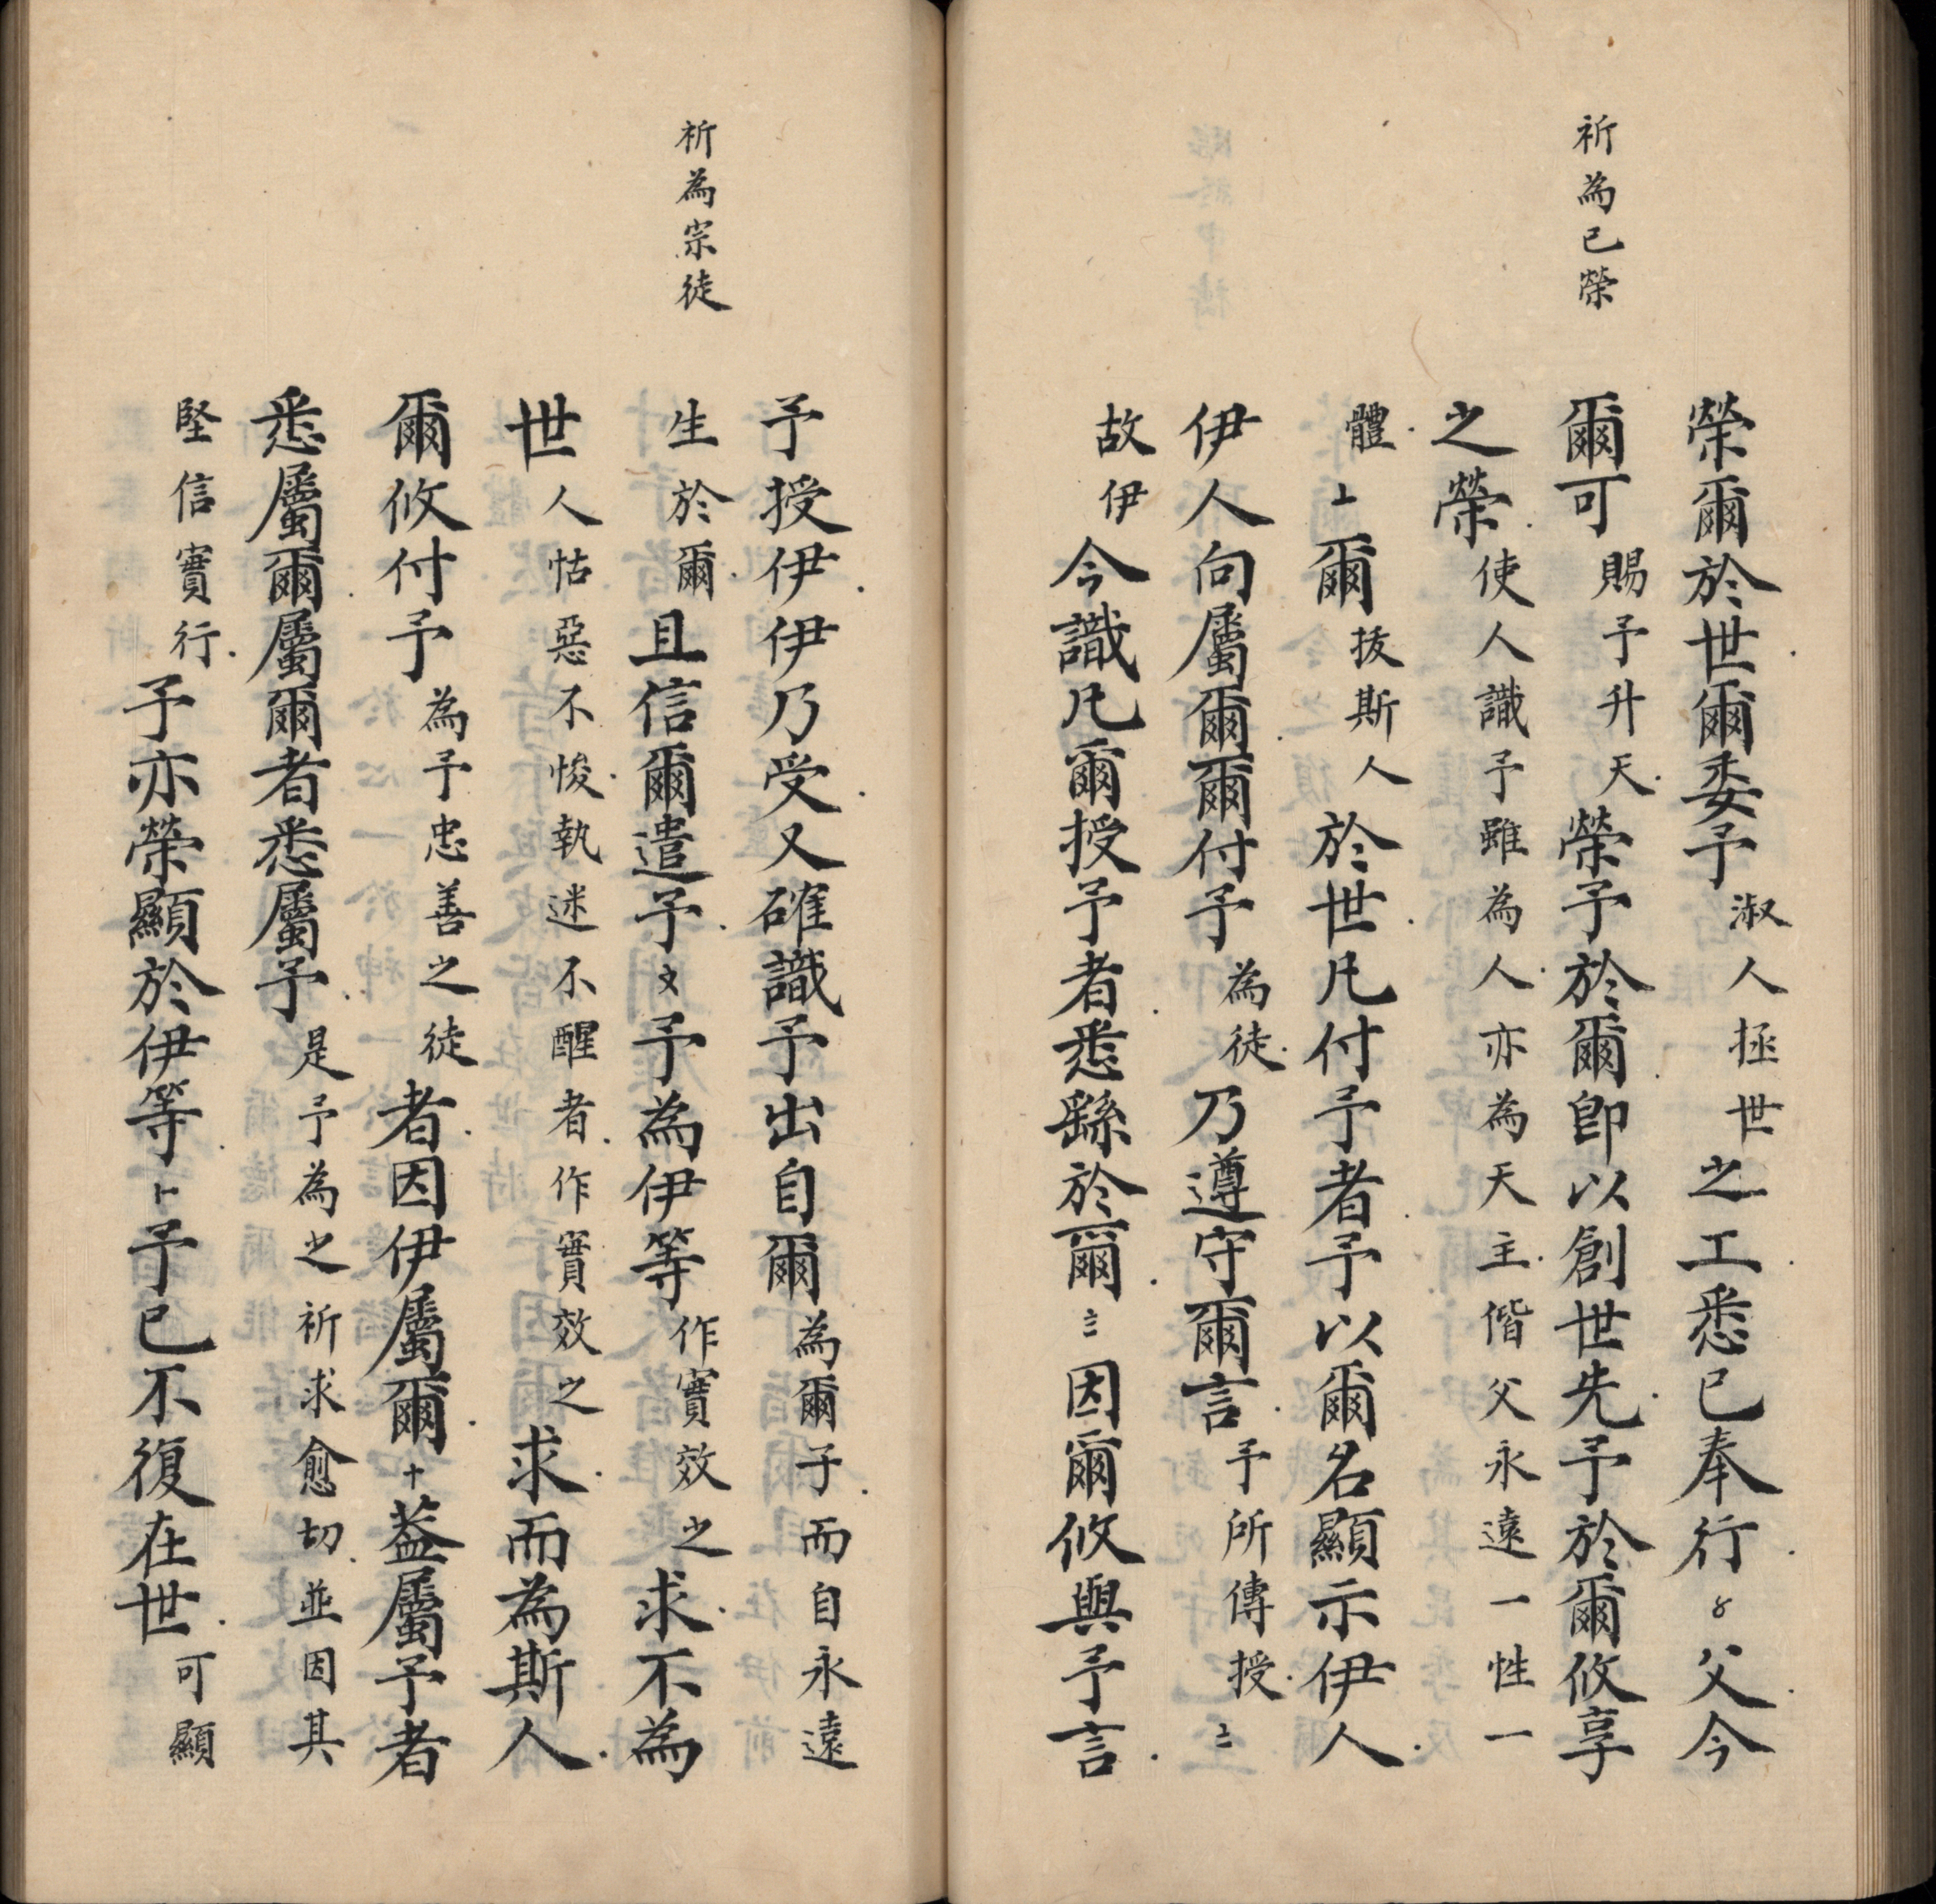 祈為已榮
榮爾於世爾委予淑人拯世之工悉已奉行父今
爾可賜予升天榮予於爾即以創世先予於爾攸享
之榮使人識予雖為人亦為天主偕父永遠一性一
體爾拔斯人於世凡付予者予以爾名顯示伊人
伊人向屬爾爾付予為徒乃遵守爾言予所傳授
故伊今識凡爾授予者悉繇於爾因爾攸與予言
祈為宗徒
予授伊伊乃受又確識予出自爾為爾子而自永遠
生於爾且信爾遣予予為伊等作實效之求不為
世人怙惡不悛執迷不醒者作實效之求而為斯人
爾攸付予為予忠善之徒者因伊屬爾十葢屬予者
悉屬爾屬爾者悉屬予是予為之祈求愈切並因其
堅信實行予亦榮顯於伊等予已不復在世可顯